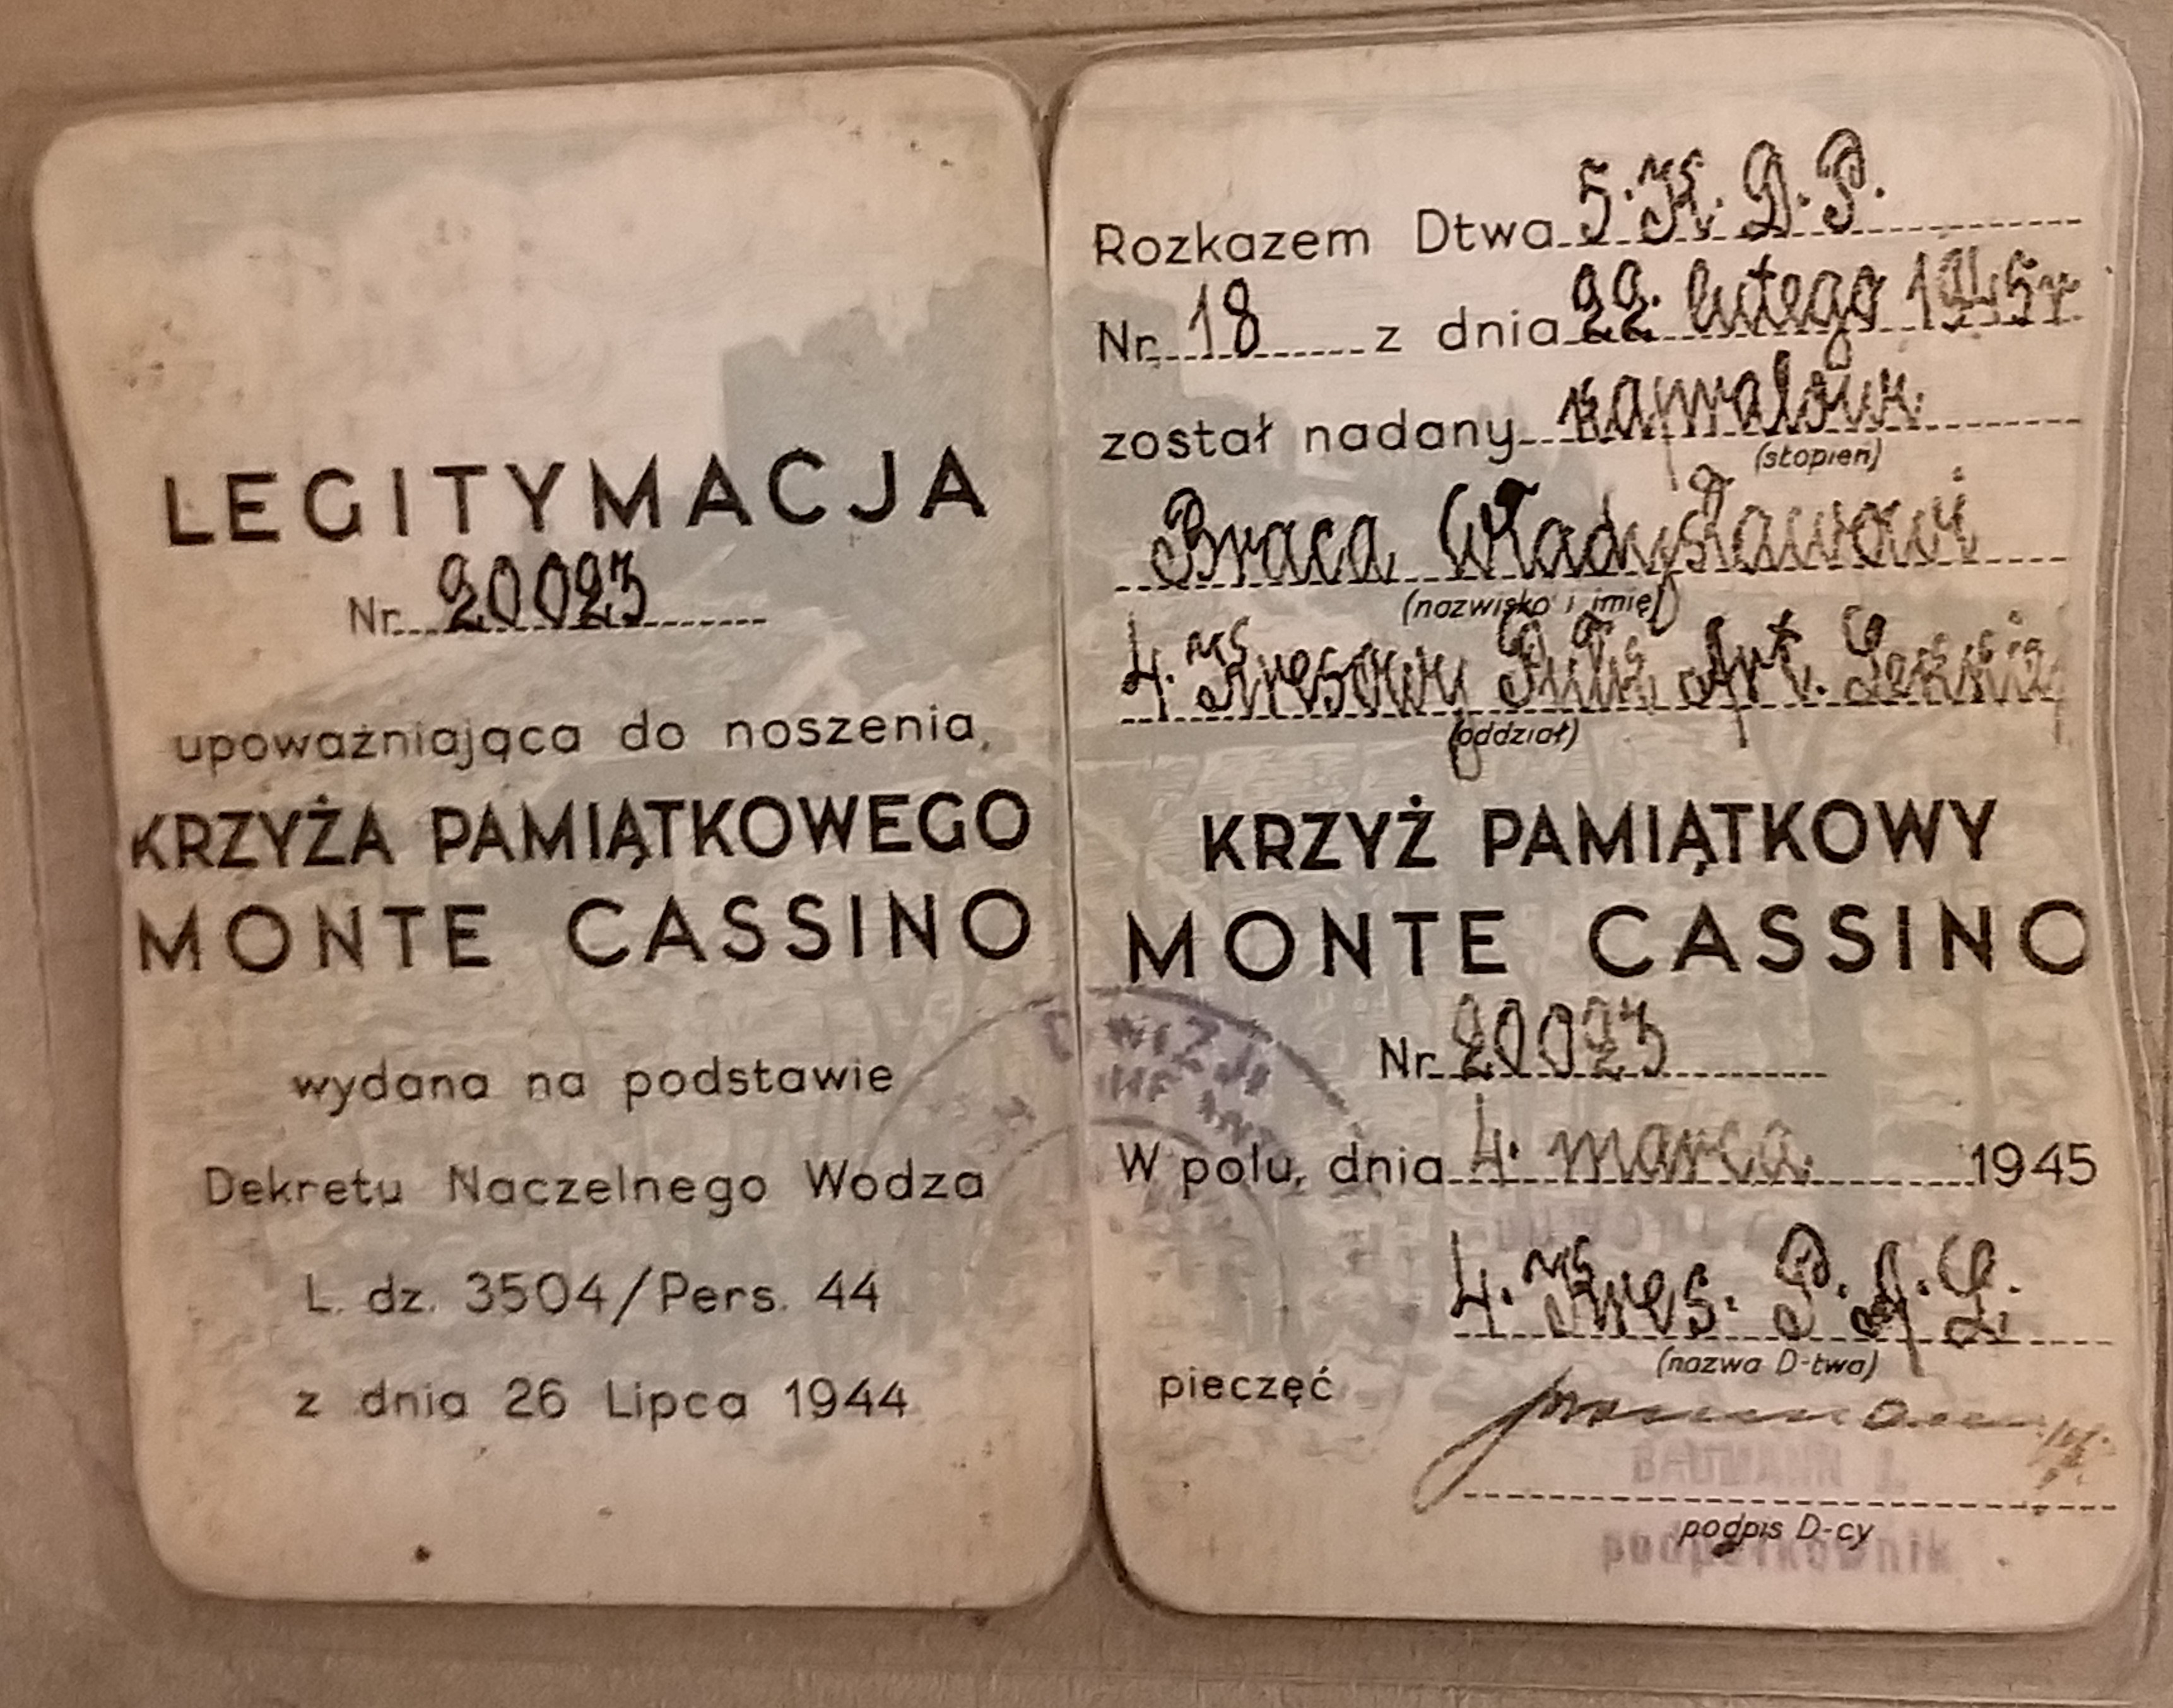 LEGITYMACJA
Nr. 20023
upoważniająca do noszenia,
KRZYŻA PAMIĄTKOWEGO
MONTE CASSINO
wydana na podstawie
Dekretu Naczelnego Wodza
L. dz. 3504/Pers. 44
z dnia 26 Lipca 1944
Rozkazem Dtwa 5. K. D. P.
Nr. 18 z dnia 22. lutego 1945r
został nadany kapralowi
(stopień)
Braca Władysławowi
(nazwisko i imię)
4. Kresowy Pułk Art. Lekkiej
(oddział)
KRZYŻ PAMIĄTKOWY
MONTE CASSINO
Nr. 20023
W polu, dnia 4. marca 1945
4. Kres. P. A. L.
(nazwa D-twa)
pieczęć
BAUMANN
podpis D-cy
podpułkownik